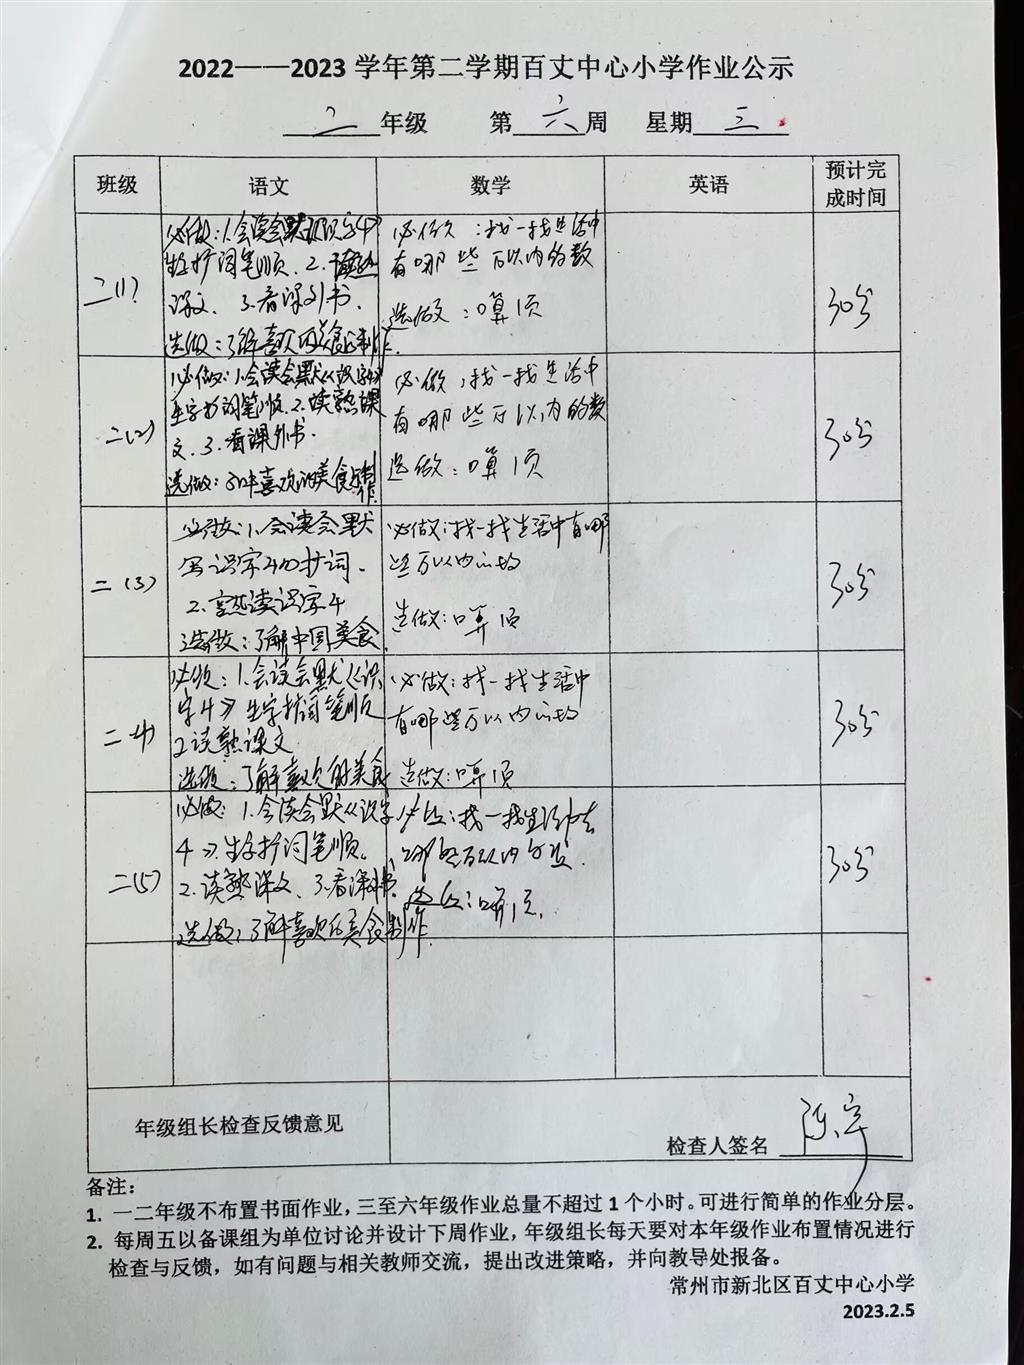 2022——2023 学年第二学期百丈中心小学作业公示
二 年级 第 六 周 星期 三
班级 语文 数学 英语 预计完
成时间
二(1)
必做:1.会读会默识字4
生字扩词笔顺. 2.读熟
课文、3.看课外书.
选做:了解喜欢的美食的制作.
必做:找一找生活中
有哪些万以内的数
选做:口算1页
30分
二(2)
必做:1.会读会默《识字4》
生字扩词笔顺.2.读熟课
文.3.看课外书.
选做:了解喜欢的美食的制作.
必做:找一找生活中
有哪些万以内的数
选做:口算1页
30分
二(3)
必做:1.会读会默
写识字4的扩词.
2.熟读识字4
选做:了解中国美食
必做:找一找生活中有哪
些万以内的数
选做:口算1页
30分
二(4)
必做:1.会读会默《识
字4》生字扩词笔顺
2.读熟课文
选做:了解喜欢的美食
必做:找一找生活中
有哪些万以内的数
选做:口算1页
30分
二(5)
必做:1.会读会默《识字
4》.生字扩词笔顺.
2.读熟课文、3.看课外书.
选做:了解喜欢的美食制作.
必做:找一找生活中有
哪些万以内的数.
选做:口算1页.
30分
年级组长检查反馈意见
检查人签名
备注:
1. 一二年级不布置书面作业,三至六年级作业总量不超过 1 个小时。可进行简单的作业分层。
2. 每周五以备课组为单位讨论并设计下周作业,年级组长每天要对本年级作业布置情况进行
检查与反馈,如有问题与相关教师交流,提出改进策略,并向教导处报备。
常州市新北区百丈中心小学
2023.2.5